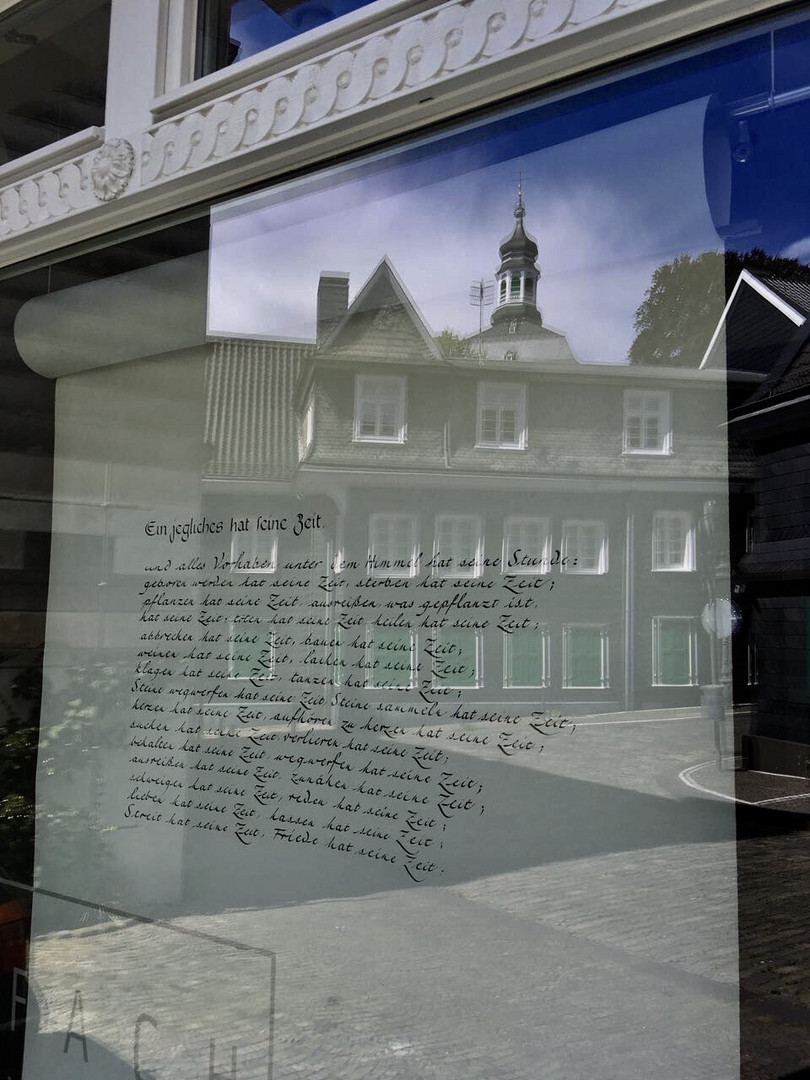 Ein jegliches hat seine Zeit.
und alles Vorhaben unter dem Himmel hat seine Stunde:
geboren werden hat seine Zeit, sterben hat seine Zeit;
pflanzen hat seine Zeit, ausreißen, was gepflanzt ist,
hat seine Zeit; töten hat seine Zeit, heilen hat seine Zeit;
abbrechen hat seine Zeit, bauen hat seine Zeit;
weinen hat seine Zeit, lachen hat seine Zeit;
klagen hat seine Zeit, tanzen hat seine Zeit;
Steine wegwerfen hat seine Zeit, Steine sammeln hat seine Zeit;
herzen hat seine Zeit, aufhören zu herzen hat seine Zeit;
suchen hat seine Zeit, verlieren hat seine Zeit;
behalten hat seine Zeit, wegwerfen hat seine Zeit;
ausreißen hat seine Zeit, zunähen hat seine Zeit;
schweigen hat seine Zeit, reden hat seine Zeit;
lieben hat seine Zeit, hassen hat seine Zeit;
Streit hat seine Zeit, Friede hat seine Zeit.
FACH